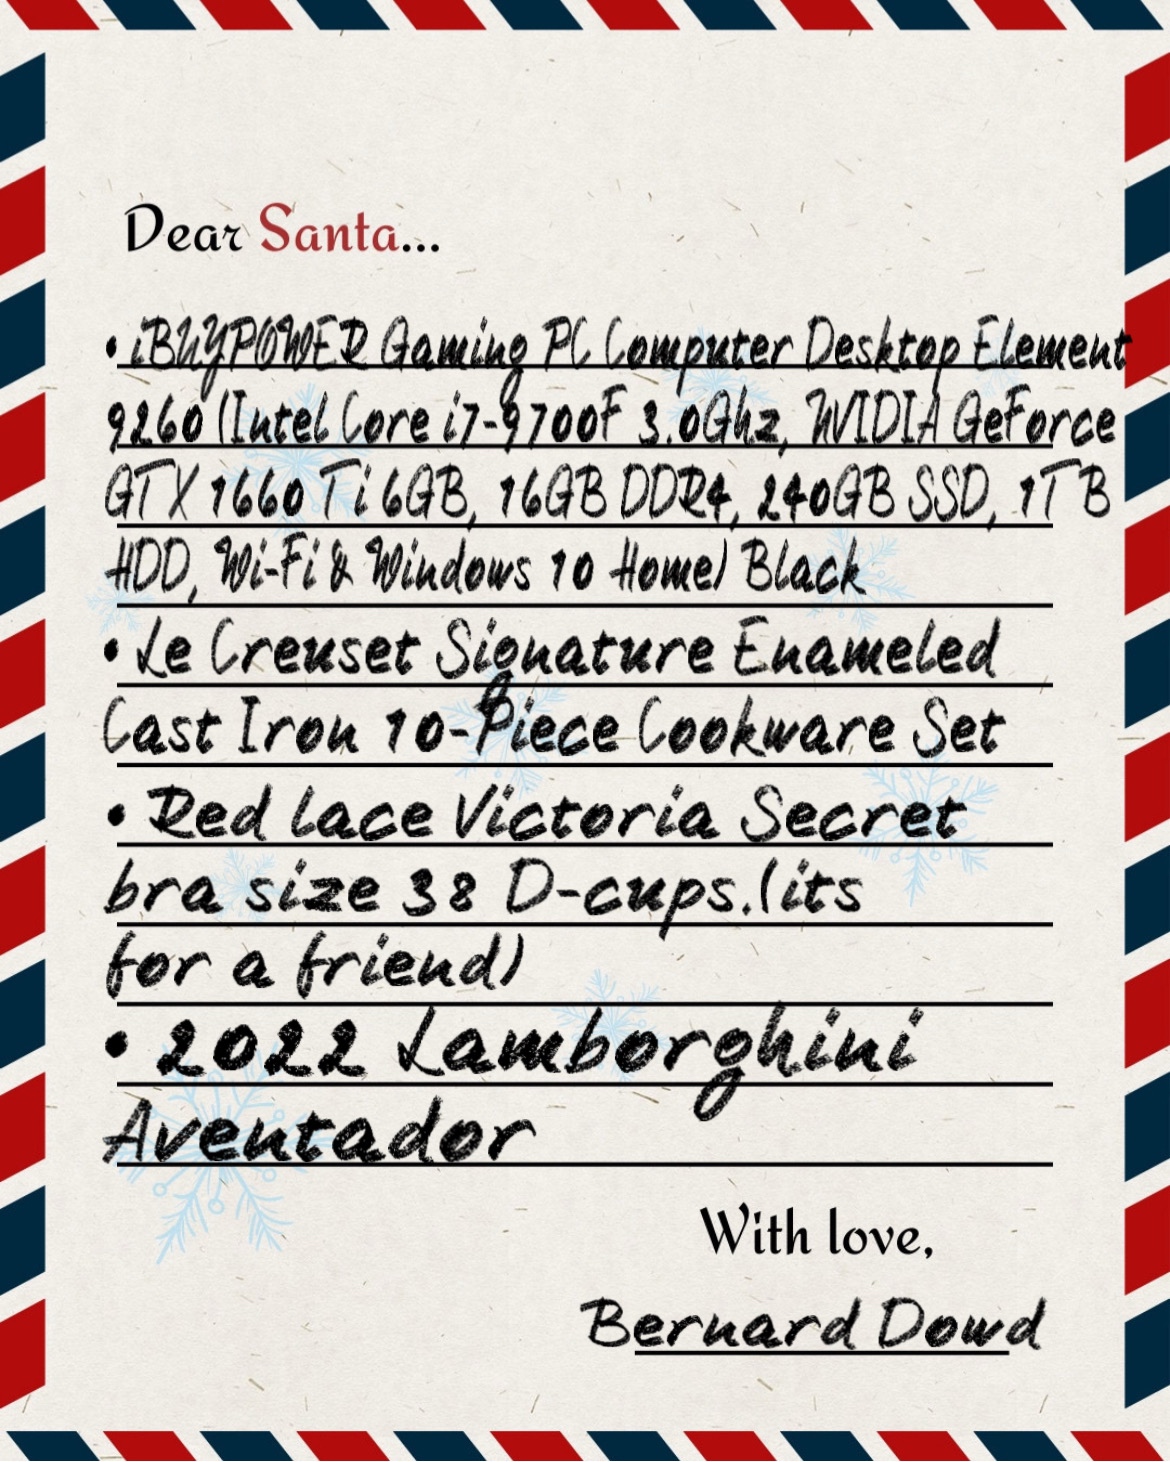 Dear Santa...
• iBUYPOWER Gaming PC Computer Desktop Element
9260 (Intel Core i7-9700F 3.0Ghz, NVIDIA GeForce
GTX 1660 Ti 6GB, 16GB DDR4, 240GB SSD, 1TB
HDD, Wi-Fi & Windows 10 Home) Black
• Le Creuset Signature Enameled
Cast Iron 10-Piece Cookware Set
• Red lace Victoria Secret
bra size 38 D-cups.(its
for a friend)
• 2022 Lamborghini
Aventador
With love,
Bernard Dowd